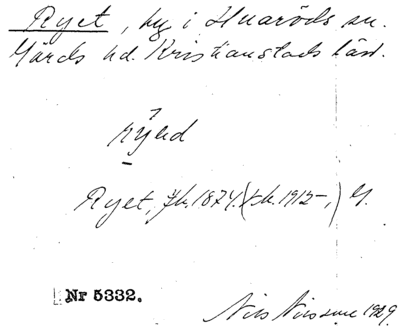 Ryet, by i Huaröds sn.
Gärds hd. Kristianstads län.
Ryet, Jb. 1874. (Sk. 1912-,) G.
Nr 5332.
Nils Nilsson 1929.